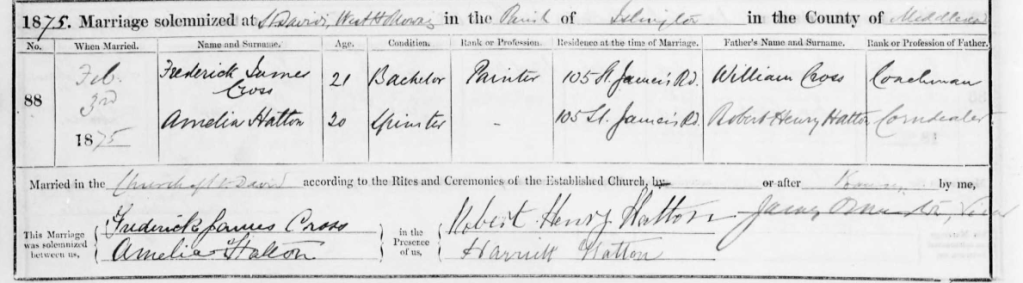 1875. Marriage solemnized at St David's, West Holloway in the Parish of Islington in the County of Middlesex
No. When Married. Name and Surname. Age. Condition. Rank or Profession. Residence at the time of Marriage. Father's Name and Surname. Rank or Profession of Father.
88 Feb. 3rd 1875 Frederick James Cross 21 Bachelor Painter 105 St. James's Rd. William Cross Coachman
Amelia Hatton 20 Spinster - 105 St. James's Rd. Robert Henry Hatton Corndealer
Married in the Church of St David according to the Rites and Ceremonies of the Established Church, by or after Banns, by me,
This Marriage was solemnized between us, Frederick James Cross in the Presence of us, Robert Henry Hatton James Vicar
Amelia Hatton Harriett Hatton